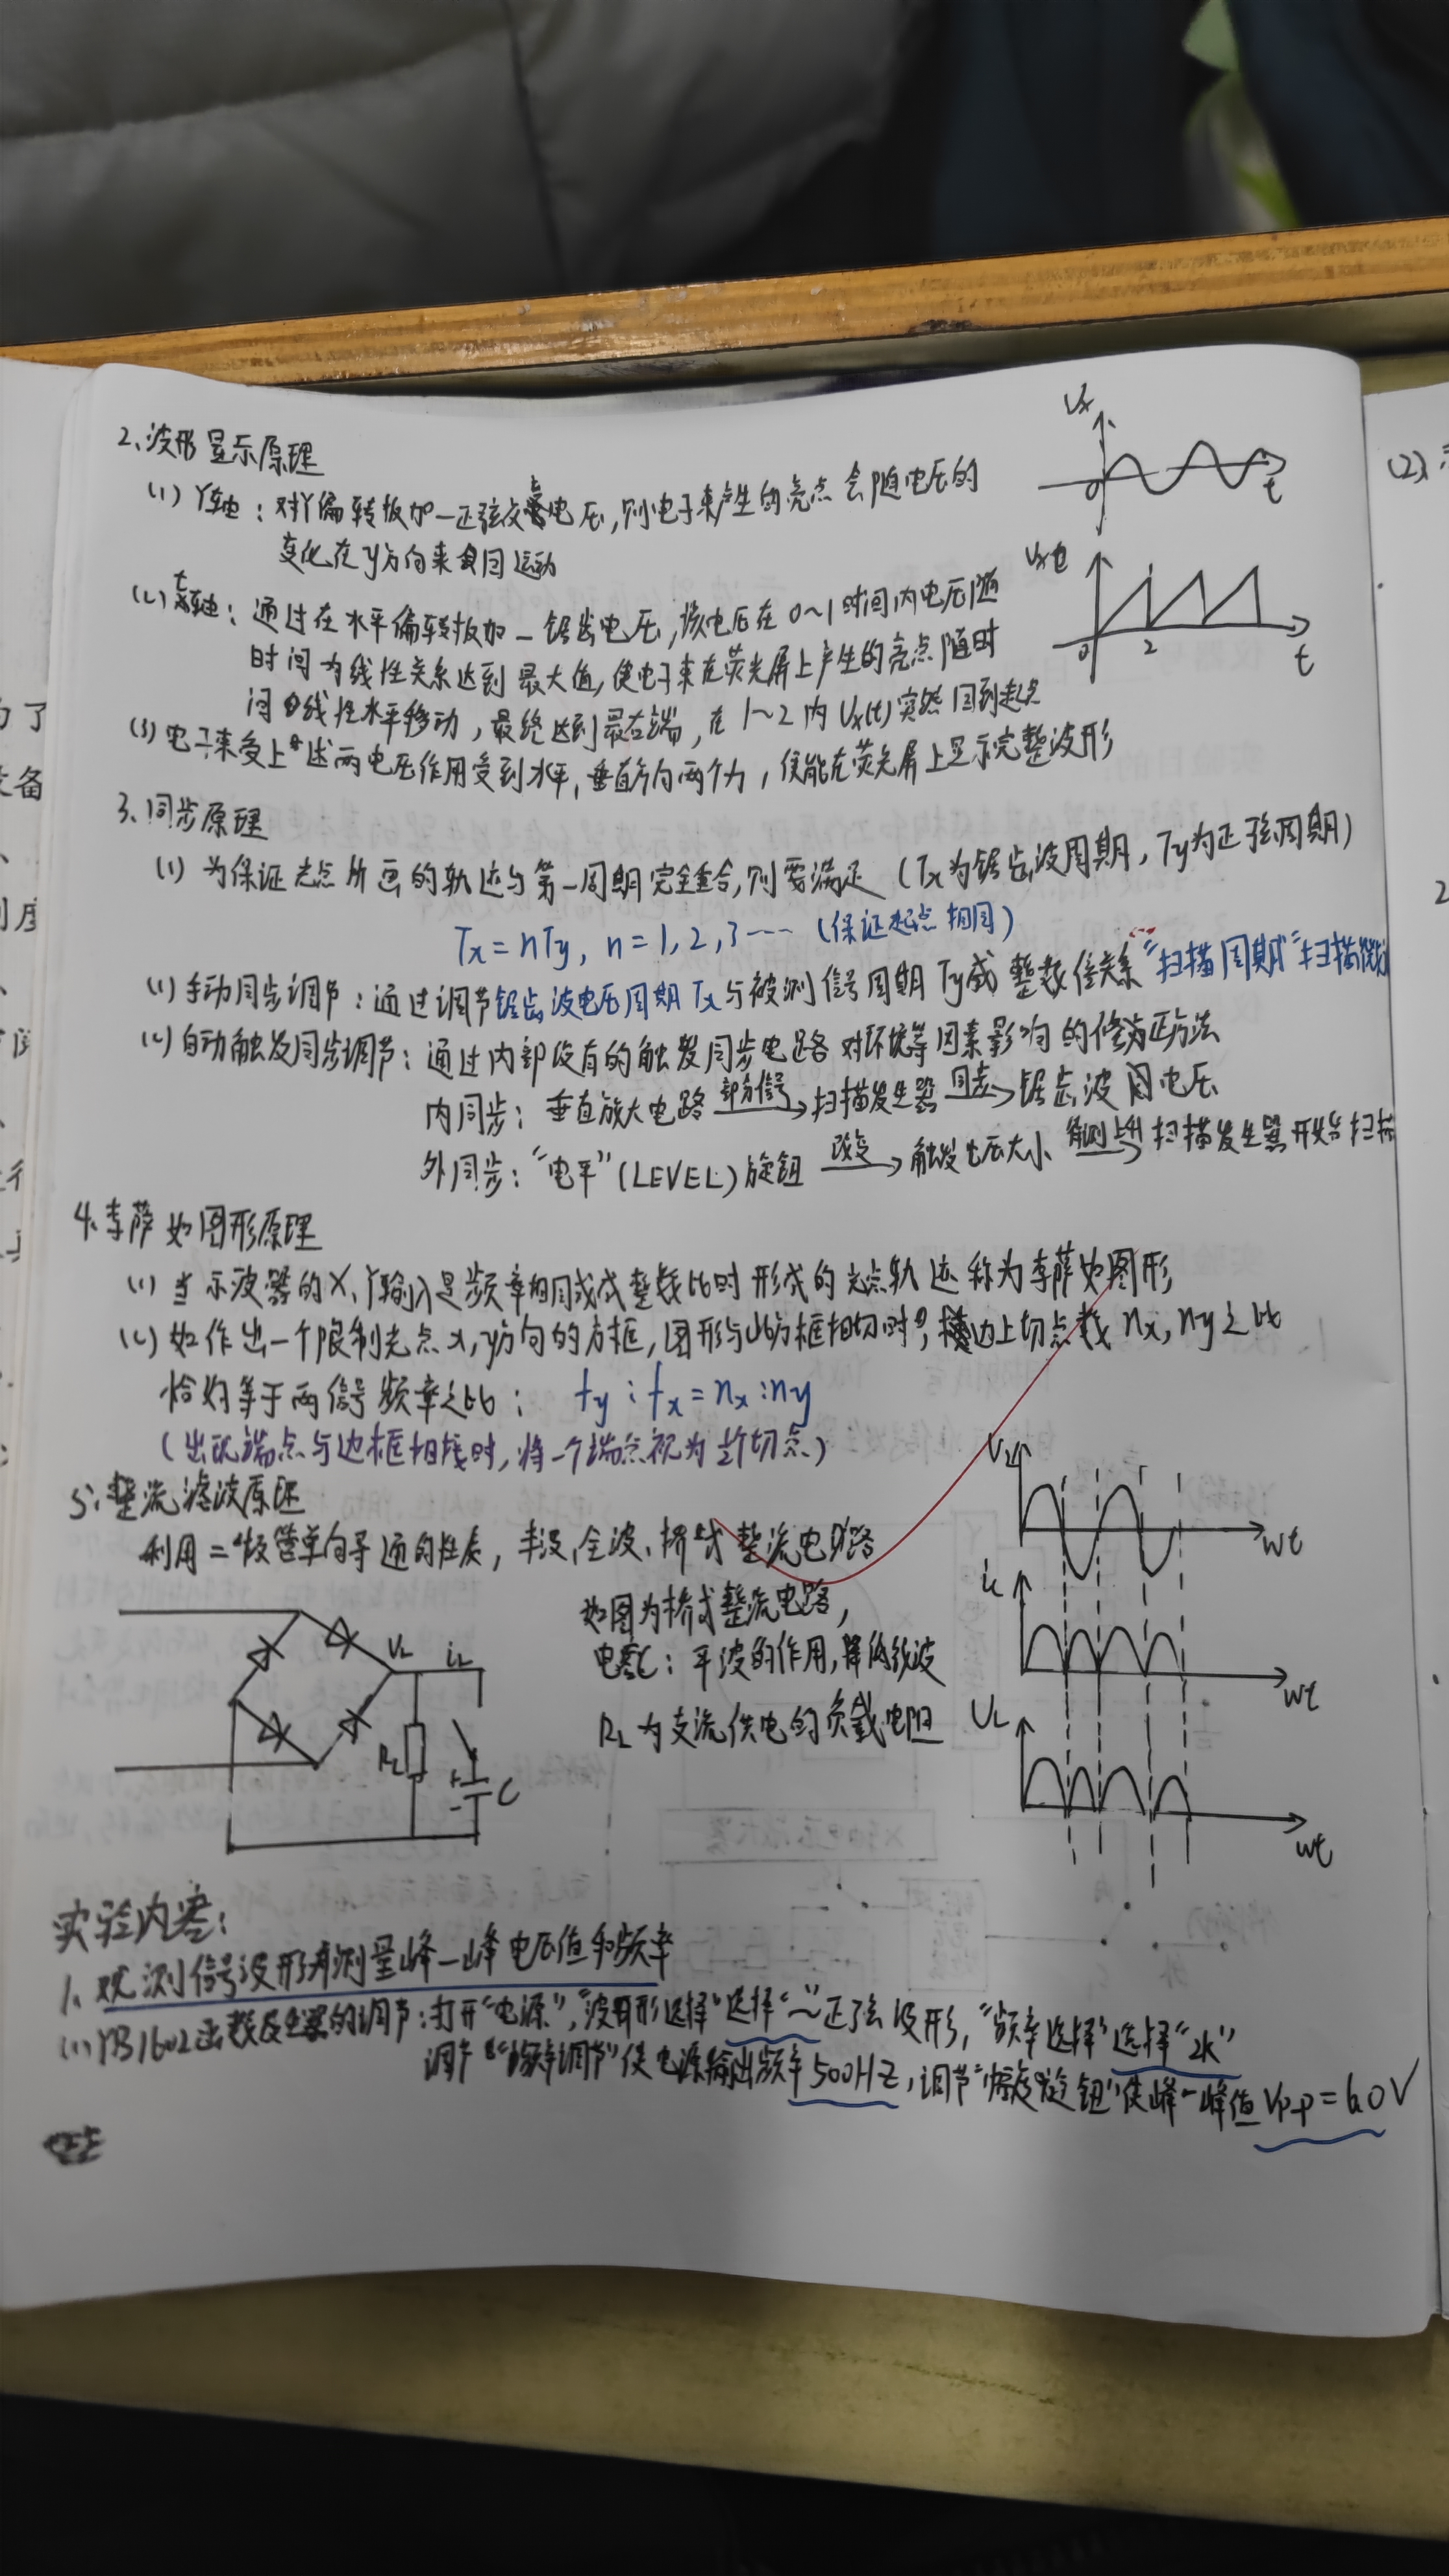 2、波形显示原理
Ux
0
t
(1) Y轴：对Y偏转板加一正弦交变电压，则电子束产生的亮点会随电压的
变化在y方向来回运动
Ux
0
2
t
(2) X轴：通过在水平偏转板加一锯齿电压，该电压在0~1时间内电压随
时间为线性关系达到最大值，使电子束在荧光屏上产生的亮点随时
间线性水平移动，最终达到最右端，在1~2内Ux(t)突然回到起点
(3) 电子束受上述两电压作用受到水平，垂直方向两个力，便能在荧光屏上显示完整波形
3、同步原理
(1) 为保证光点所画的轨迹与第一周期完全重合，则需满足（Tx为锯齿波周期，Ty为正弦周期）
Tx=nTy, n=1,2,3…（保证起点相同）
(1) 手动同步调节：通过调节锯齿波电压周期Tx与被测信号周期Ty成整数倍关系“扫描周期”“扫描微调
(2) 自动触发同步调节：通过内部设有的触发同步电路对环境等因素影响的修正方法
内同步：垂直放大电路 部分信号→ 扫描发生器 同步→ 锯齿波电压
外同步：“电平”(LEVEL)旋钮 改变→ 触发电压大小 扫描发生器开始扫描
4、李萨如图形原理
(1) 当示波器的X、Y输入是频率相同或成整数比时形成的光点轨迹称为李萨如图形
(2) 如作出一个限制光点x,y方向的方框，图形与此方框相切时，横边上切点数nx,ny之比
恰好等于两信号频率之比： fy:fx=nx:ny
（出现端点与边框相接时，将一个端点视为½个切点）
5、整流滤波原理
利用二极管单向导通的性质，半波、全波、桥式整流电路
如图为桥式整流电路，
电容C：平波的作用，降低纹波
RL为支流供电的负载电阻
UL
iL
RL
C
wt
iL
wt
UL
wt
实验内容：
1、观测信号波形并测量峰—峰电压值和频率
(1) YB1602函数发生器的调节：打开“电源”，“波形选择”选择“~”正弦波形，“频率选择”选择“2k”
调节“频率调节”使电源输出频率500HZ，调节“幅度旋钮”使峰—峰值Vp-p=6.0V
(2)
2